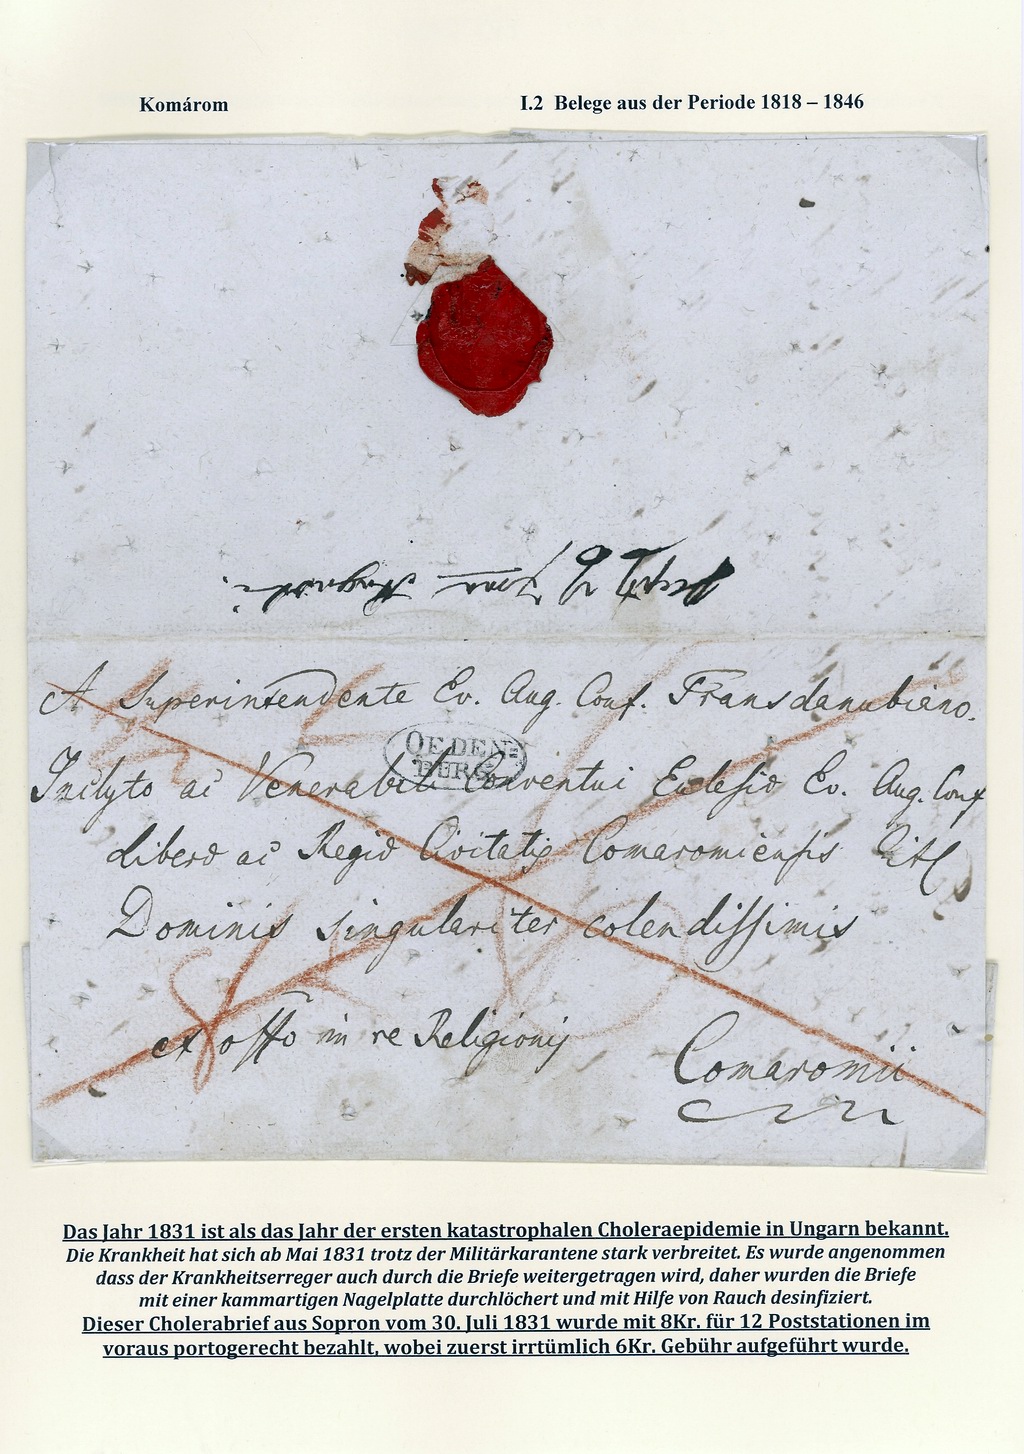 Komárom
I.2 Belege aus der Periode 1818 – 1846
A Superintendente Ev. Aug. Conf. Transdanubiano.
OEDEN=
BURG
Inclyto ac Venerabili Conventui Eclesio Ev. Aug. Conf
libero ac Regio Civitatis Comaromiensis
Dominis singulariter colendissimis
ex offo in re Religionis
Comaromii
Das Jahr 1831 ist als das Jahr der ersten katastrophalen Choleraepidemie in Ungarn bekannt.
Die Krankheit hat sich ab Mai 1831 trotz der Militärkarantene stark verbreitet. Es wurde angenommen
dass der Krankheitserreger auch durch die Briefe weitergetragen wird, daher wurden die Briefe
mit einer kammartigen Nagelplatte durchlöchert und mit Hilfe von Rauch desinfiziert.
Dieser Cholerabrief aus Sopron vom 30. Juli 1831 wurde mit 8Kr. für 12 Poststationen im
voraus portogerecht bezahlt, wobei zuerst irrtümlich 6Kr. Gebühr aufgeführt wurde.